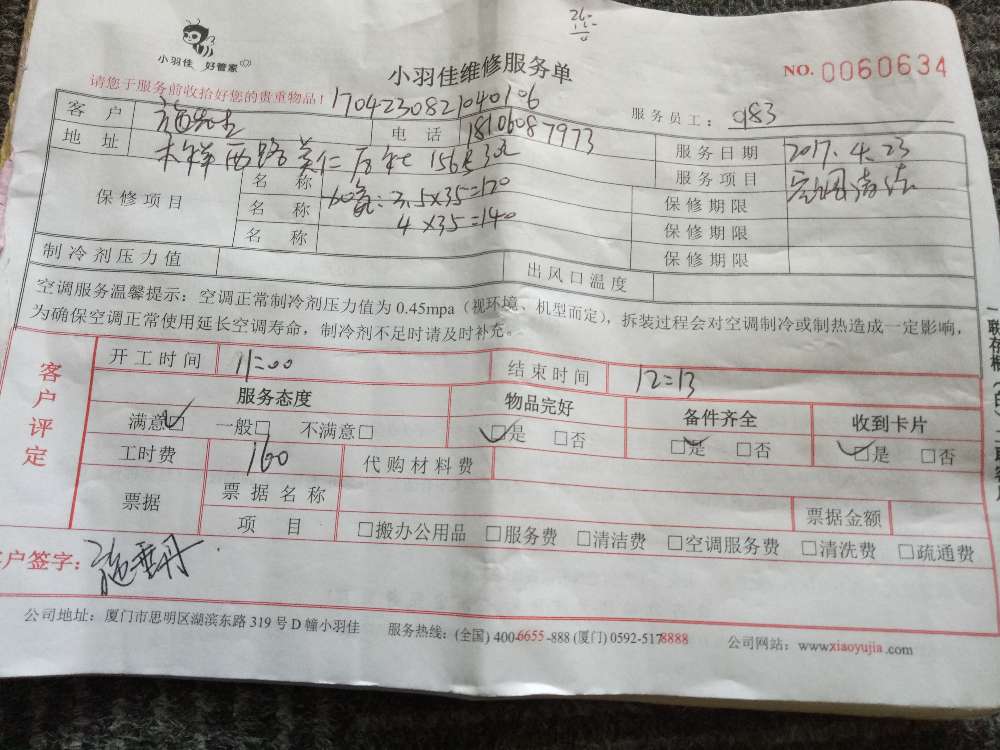 小羽佳 好管家
小羽佳维修服务单
NO. 0060634
请您于服务前收拾好您的贵重物品！
1704230821040106
服务员工： 983
客 户
电 话 18106087973
服务日期 2017.4.23
地 址
服务项目 空调清洗
保修项目
名 称 3.5x35=120
保修期限
名 称 4x35=140
保修期限
名 称
保修期限
制冷剂压力值
出风口温度
空调服务温馨提示：空调正常制冷剂压力值为 0.45mpa（视环境、机型而定），拆装过程会对空调制冷或制热造成一定影响，
为确保空调正常使用延长空调寿命，制冷剂不足时请及时补充。
客户评定
开工时间 11:00
结束时间 12:13
服务态度 物品完好 备件齐全 收到卡片
满意☑ 一般□ 不满意□ ☑是 □否 ☑是 □否 ☑是 □否
工时费 160 代购材料费
票据 票据名称 票据金额
项 目 □搬办公用品 □服务费 □清洁费 □空调服务费 □清洗费 □疏通费
客户签字：
公司地址：厦门市思明区湖滨东路 319 号 D 幢小羽佳 服务热线：(全国) 400-6655-888 (厦门) 0592-5178888 公司网站：www.xiaoyujia.com